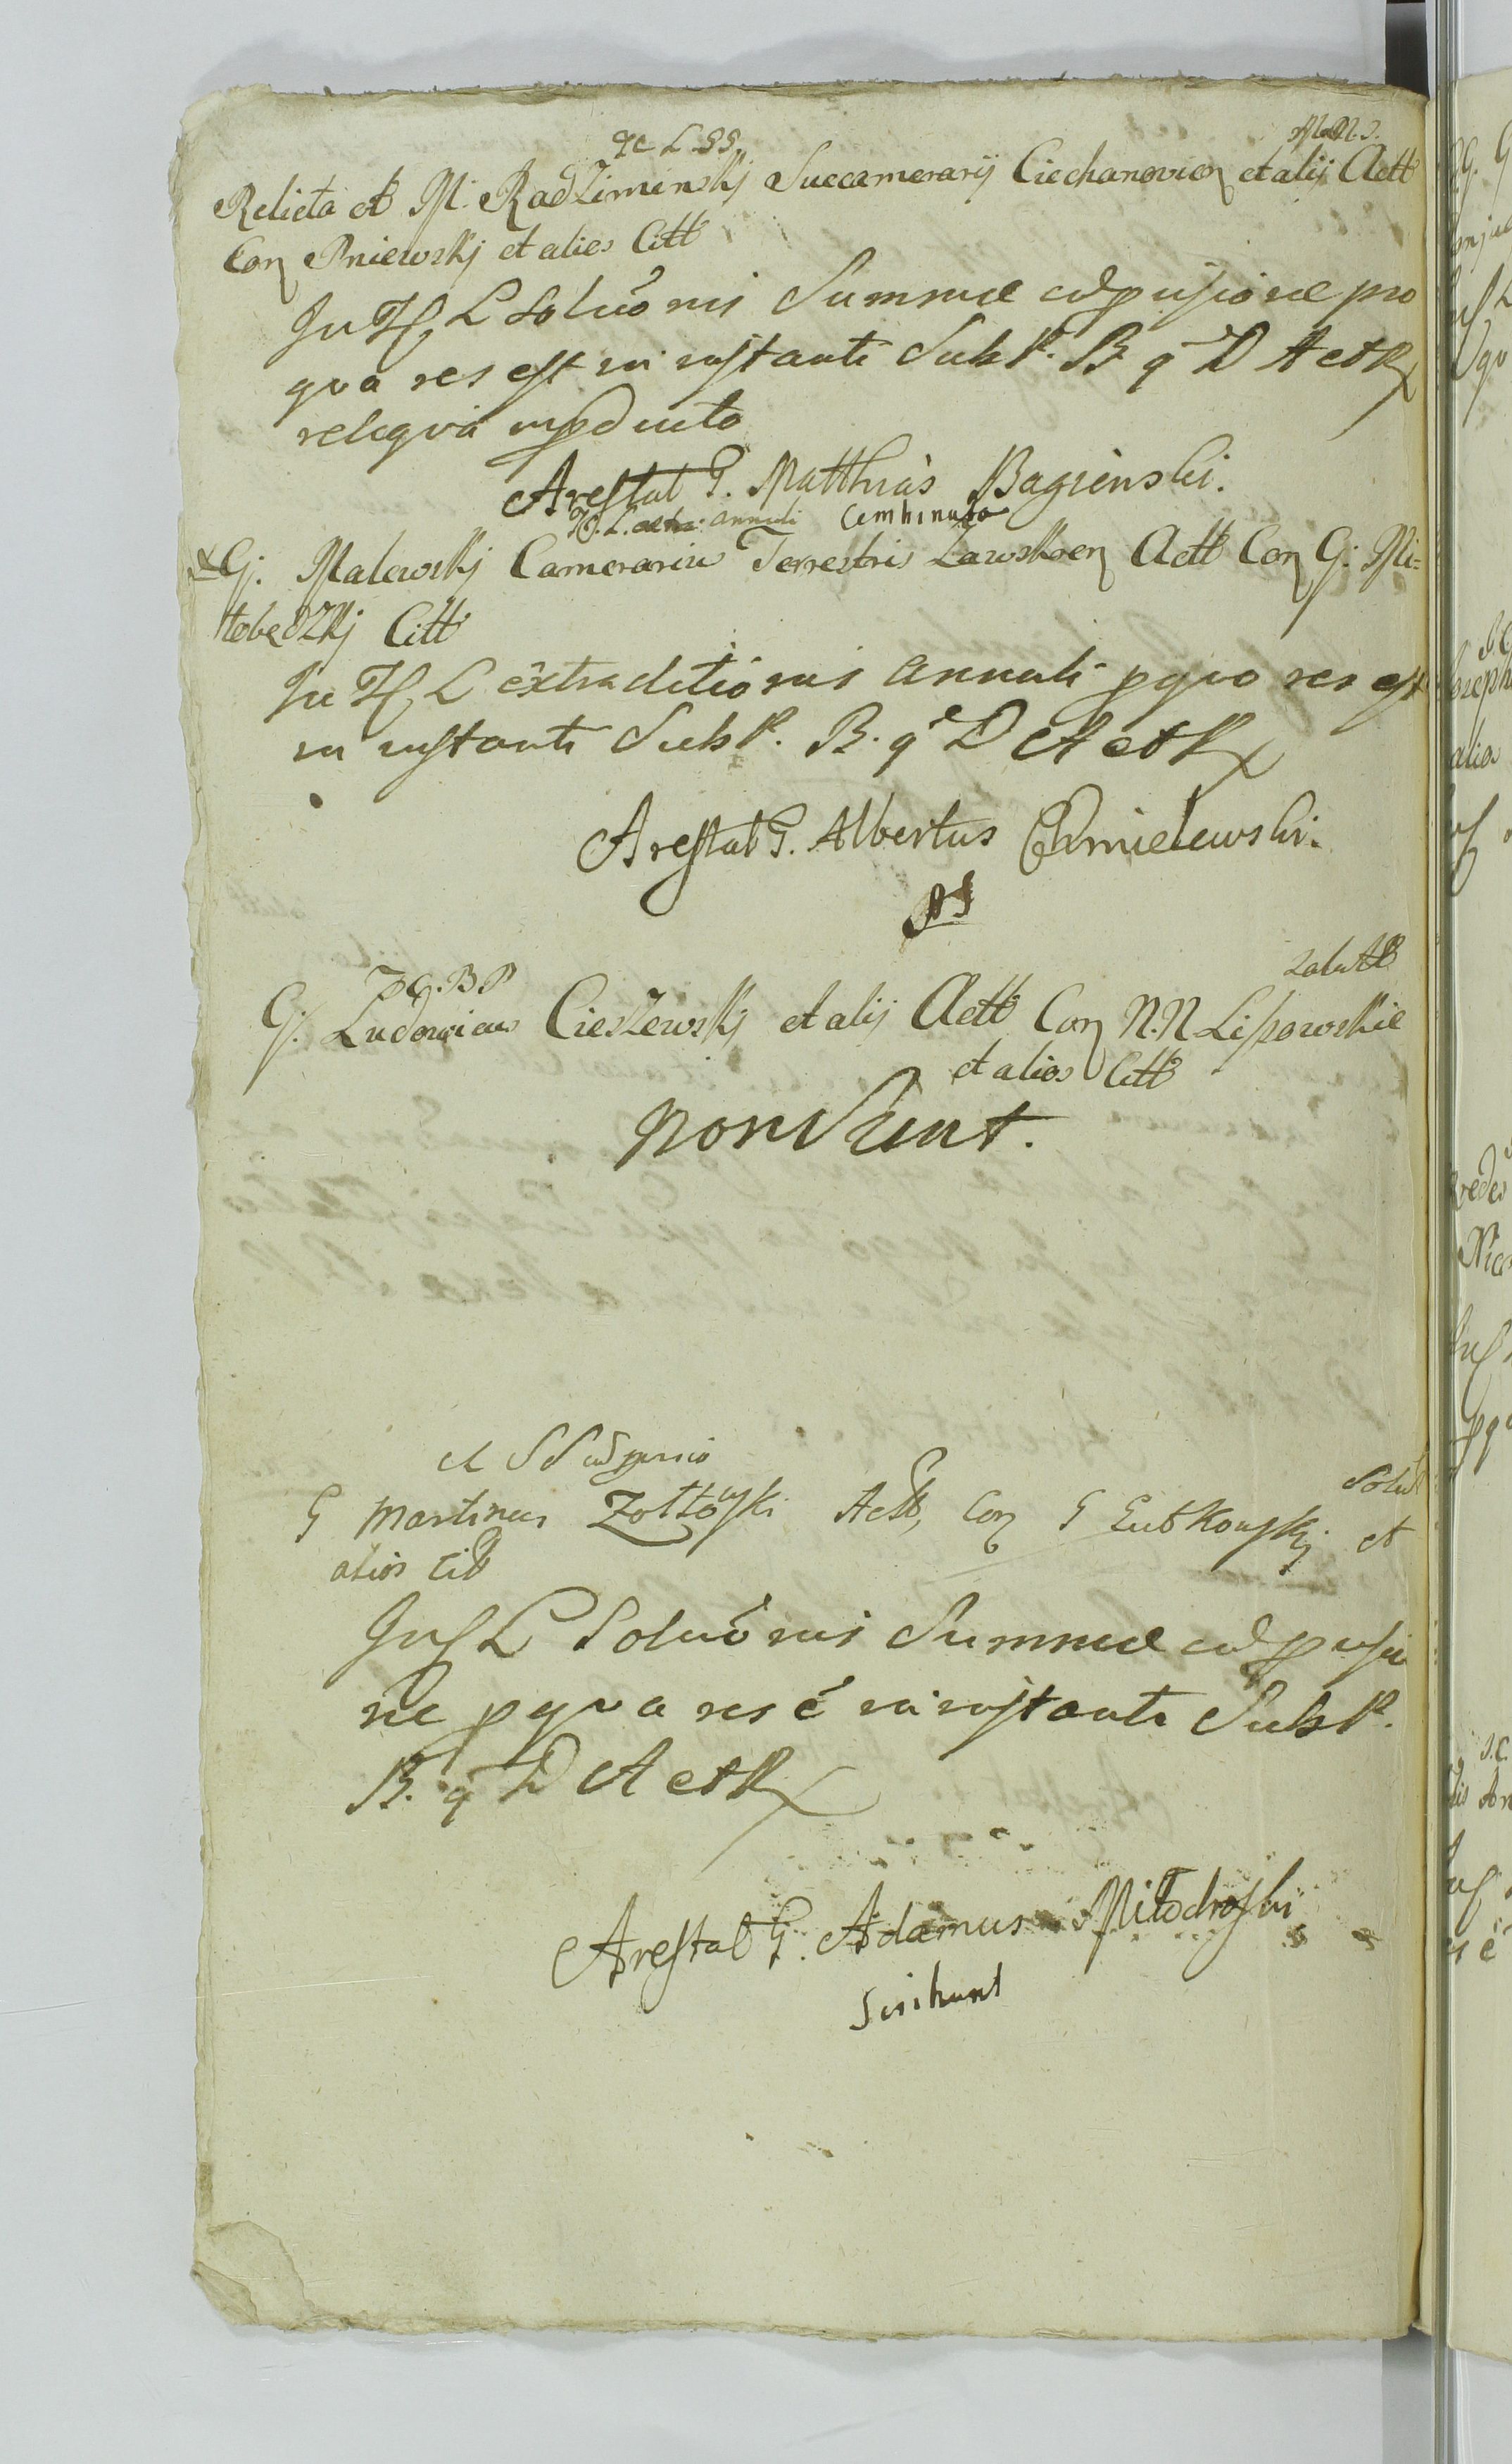 JC L SS.
Relicta ol M. Radziminskj Succamerarij Ciechanovien et alij Actt
Con Pniewskj et alios Citt
Ju H L Soluõnis Summæ pro
qva res est in instanti Subs P. B q D A et R
reliqva
Arestat G. Matthias Bagienski.
H. L. annuli Combinata
G. Malewskj Camerarius Terrestris Zawskren Actt Con G. Mi=
łobędzkj Citt
Ju H L extraditionis annuli p qvo res est
in instanti Subs P. B. q D A et R
Arestat G. Albertus Chmielewski.
Solutt
G. Ludovicus Cieszewskj et alij Actt Con N.N Lipowskie
et alios Citt
Non Sunt.
Solut
G Martinus Zołtowski Actt, Con G Lutkowskj et
alios Citt
Jus L Soluõnis Summæ
ne p qva res é in instanti Subs P.
B. q D A et R
Arestat G. Adamus Miłodroski